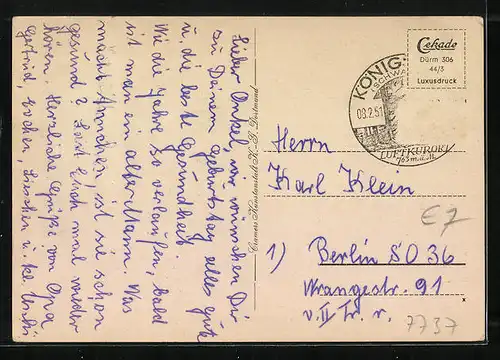 Lieber Onkel, wir wünschen Dir
zu Deinem Geburtstag alles Gute
u. die beste Gesundheit.
Wie die Jahre so verlaufen, bald
ist man ein alter Mann. Was
macht Annchen, ist sie schon
gesund? Lasst Euch mal wieder
hören. Herzliche Grüße von Opa
Gertrud, Lieschen u. kl.
Cramers Kunstanstalt K.-G. Dortmund
Cekade
Dürm 306
44/3
Luxusdruck
KÖNIG
SCHWA
08.2.51
LUFTKURORT
763 m.ü.M.
Herrn
Karl Klein
1) Berlin SO 36
Wrangestr. 91
v. II Tr. r.
€7
7737
x